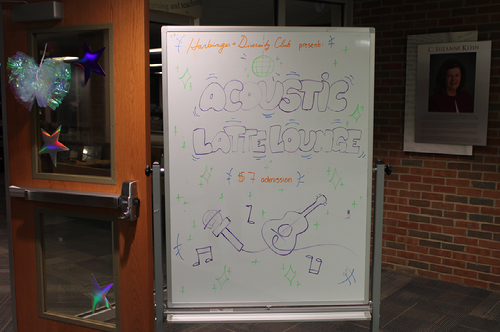 Harbinger + Diversity Club present
ACOUSTIC
LATTE LOUNGE
$7 admission
C. SUZANNE KLEIN